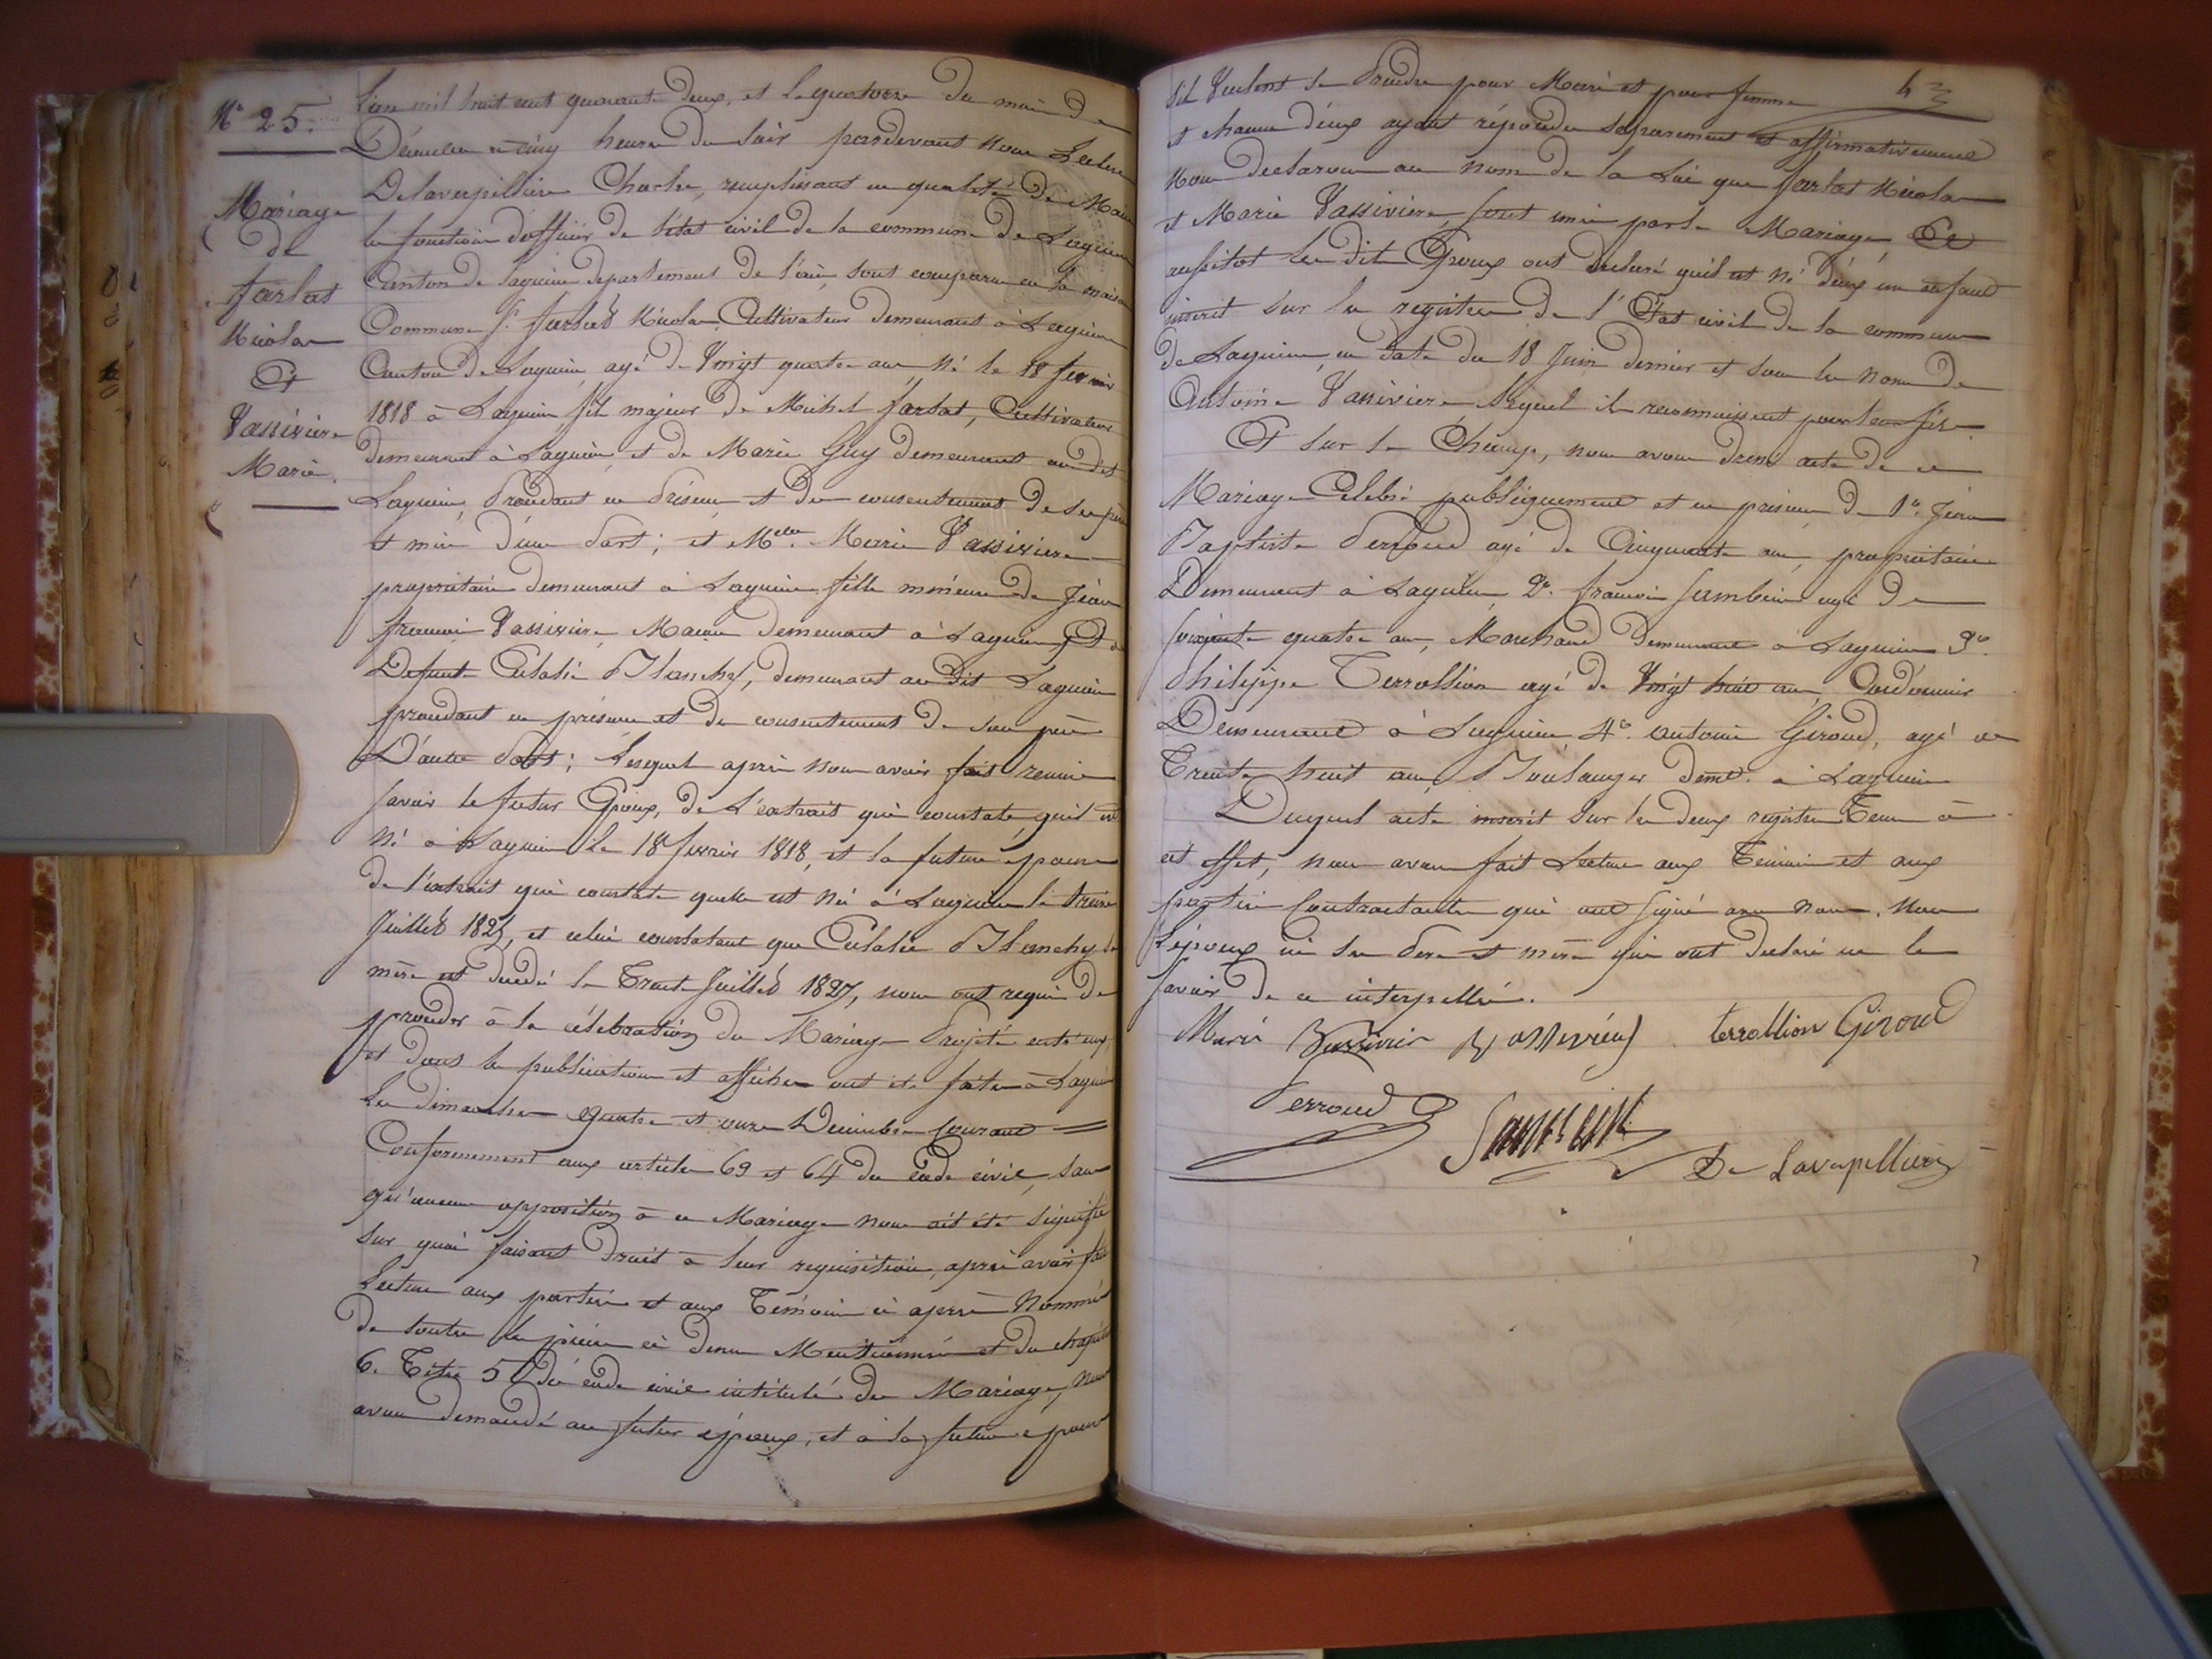 N° 25.
Mariage
de
farlat
Nicolas
Et
Vassivière
Marie.
L'an mil huit cent quarante deux, et le quatorze du mois de
Décembre à cinq heures du soir pardevant nous Leclerc
Delaverpillière Charles, remplissant en qualité de Maire
les fonctions d'officier de l'état civil de la commune de Lagnieu
Canton de Lagnieu departement de l'ain, sont comparu en la maison
Commune Sr. farlat Nicolas Cultivateur demeurant à Lagnieu
Canton de Lagnieu, agé de Vingt quatre ans, Né le 18 fevrier
1818 à Lagnieu fils majeur de Michel farlat, Cultivateur
demeurant à Lagnieu, et de Marie Guy demeurant au dit
Lagnieu, Procédant en Présence et du consentement de ses père
et mère d'une Part; et Melle. Marie Vassivière
propriétaire demeurant à Lagnieu fille mineure de Jean
françois Vassivière, Maçon demeurant à Lagnieu, Et de
Defunte Eulalie Blanchy, demeurant au dit Lagnieu
procédant en présence et du consentement de son père
D'autre Part; Lesquels après nous avoir fait remise
savoir le futur Epoux, de l'extrait qui constate, qu'il est
Né à Lagnieu le 18 fevrier 1818, et la future epouse
de l'extrait qui constate quelle est née à Lagnieu le treize
Juillet 1825, et celui constatant que Eulalie Blanchy sa
mère est décédé le Trente Juillet 1827, nous ont requis de
procéder à la célébration du Mariage Projeté entr'eux
et dont les publications et affiches ont été faites à Lagnieu
les dimanches quatre et onze Decembre Courant =
Conformement aux articles 63 et 64 du code civil, sans
qu'aucune opposition à ce Mariage nous ait été signifié
sur quoi faisant droit à leur requisition, après avoir fait
Lecture aux parties et aux Témoins ci après Nommés
de toutes les pièces ci dessus Mentionnées et du chapitre
6. Titre 5 du code civil intitulé du Mariage, Nous
avons demandé au futur époux, et à la future épouse
43
s'ils Veulent se Prendre pour Mari et pour femme
et chacun d'eux ayant répondu séparement et affirmativement
Nous declarons au nom de la Loi que farlat Nicolas
et Marie Vassivière, sont unis par le Mariage, Et
aussitot les dits Epoux ont declaré qu'il est né d'eux un enfant
inscrit sur les registres de l'Etat civil de la commune
de Lagnieu, en date du 18 Juin dernier et sous les noms de
Antoine Vassivière lequel ils reconnaissent pour leur fils.
Et sur le Champ, nous avons dressé acte de ce
Mariage Célébré publiquement et en présence de 1° Jean
Baptiste Perroud agé de Cinquante ans, propriétaire
Demeurant à Lagnieu, 2°. françois Sambein agé de
soixante quatre ans, Marchand demeurant à Lagnieu 3°.
Philippe Terrollion agé de Vingt huit ans, Cordonnier
Demeurant à Lagnieu, 4°. antoine Giroud, agé de
Trente huit ans, Boulanger demt. à Lagnieu
Duquel acte inscrit sur les deux registres Tenus à
cet effet, nous avons fait Lecture aux Témoins et aux
parties Contractantes qui ont signé avec nous. Non
l'époux ni ses Père et mère qui ont déclaré ne le
savoir de ce interpellés.
Marie Vassivier Vassivieres terrollion Giroud
Perroud
De Laverpillière